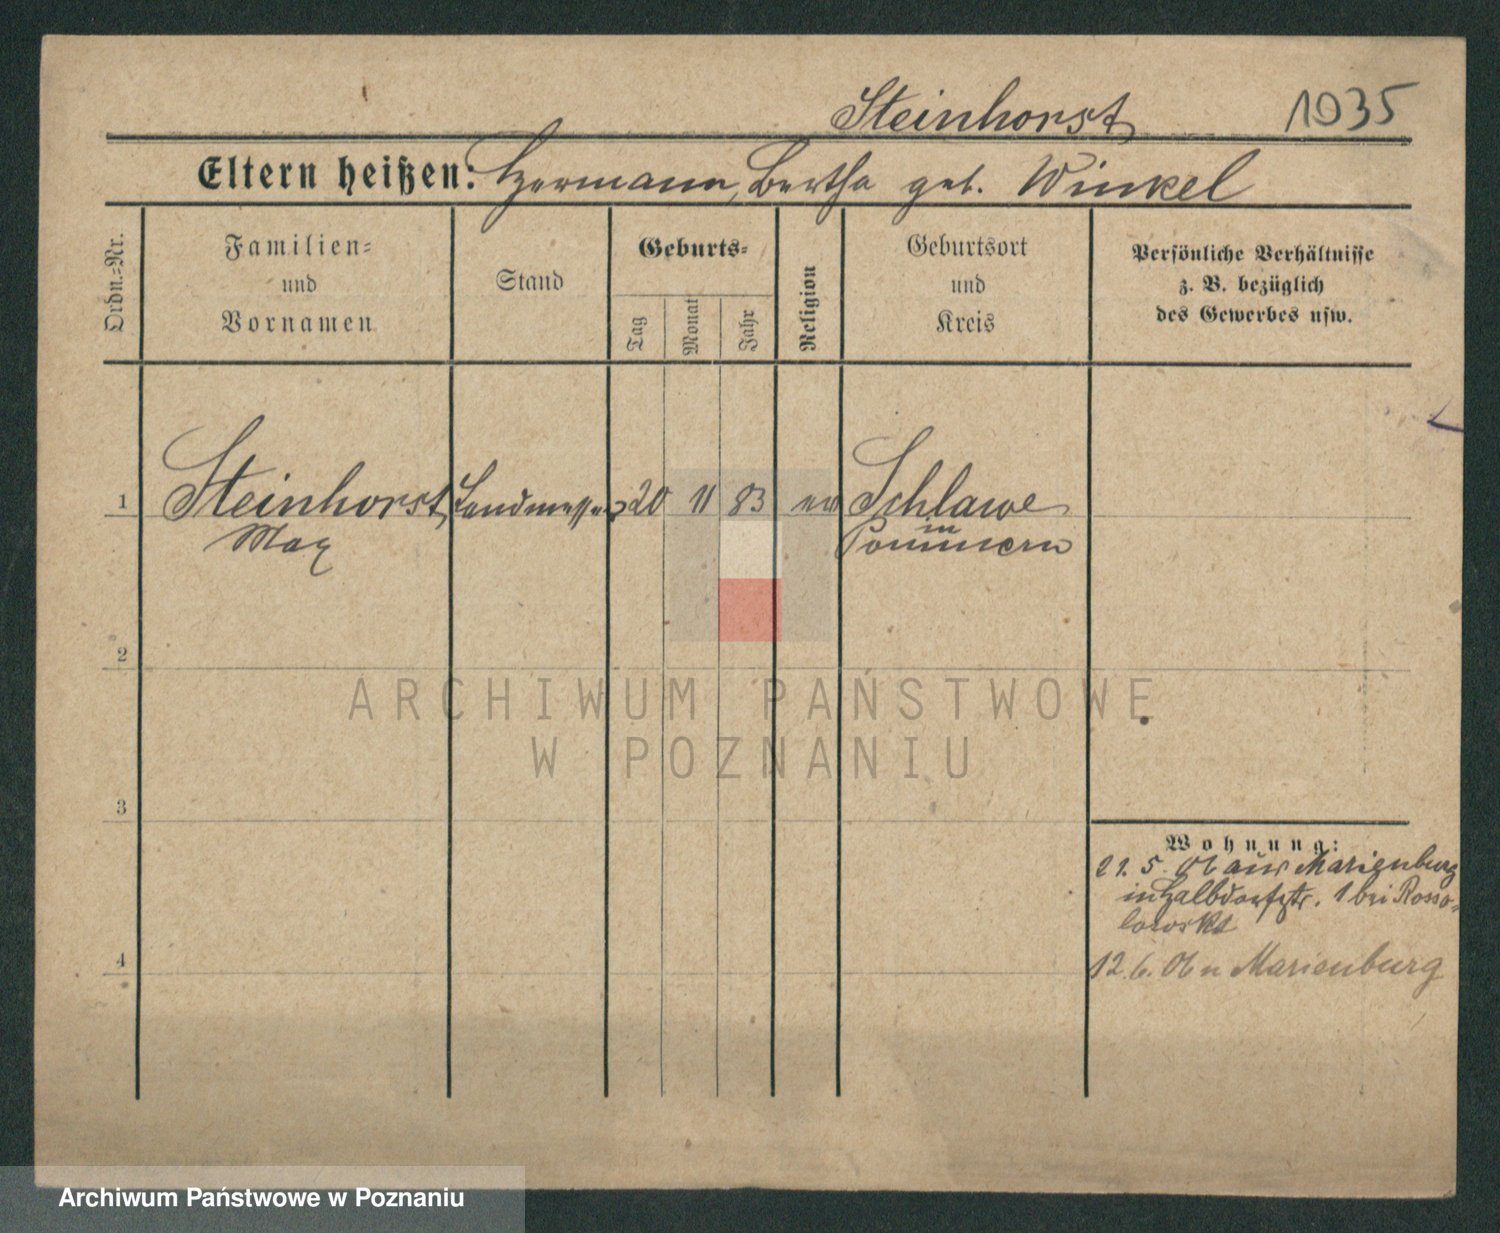 Steinhorst 1035
Eltern heißen: Hermann, Bertha geb. Winkel
Ordn.=Nr.
Familien=
und
Vornamen
Stand
Geburts=
Tag
Monat
Jahr
Religion
Geburtsort
und
Kreis
Persönliche Verhältnisse
z. B. bezüglich
des Gewerbes usw.
1 Steinhorst Landmesser 20 11 83 ev Schlawe
Max
in
Pommern
2
ARCHIWUM PAŃSTWOWE
W POZNANIU
3
Wohnung:
21. 5. 06 aus Marienburg
in Halbdorfstr. 1 bei Rosso-
lowski
4
12. 6. 06 n Marienburg
Archiwum Państwowe w Poznaniu